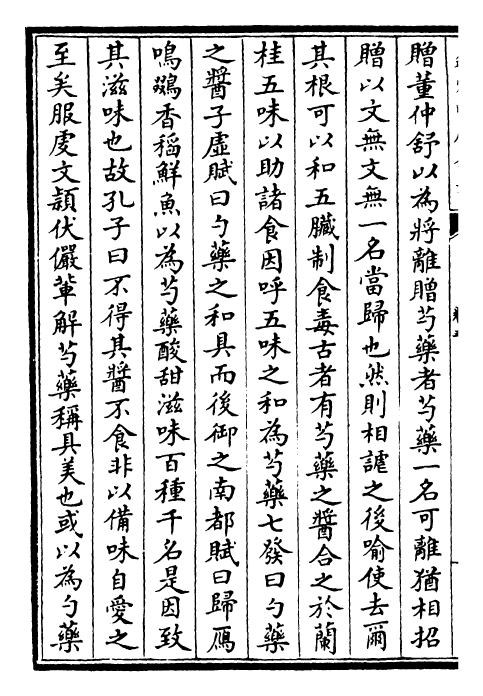 贈董仲舒以為將離贈芍藥者芍藥一名可離猶相招
贈以文無文無一名當歸也然則相謔之後喻使去爾
其根可以和五臟制食毒古者有芍藥之醬合之於蘭
桂五味以助諸食因呼五味之和為芍藥七發曰勺藥
之醬子虛賦曰勺藥之和具而後御之南都賦曰歸鴈
鳴鵽香稻鮮魚以為芍藥酸甜滋味百種千名是因致
其滋味也故孔子曰不得其醬不食非以備味自愛之
至矣服虔文穎伏儼輩解芍藥稱具美也或以為勺藥